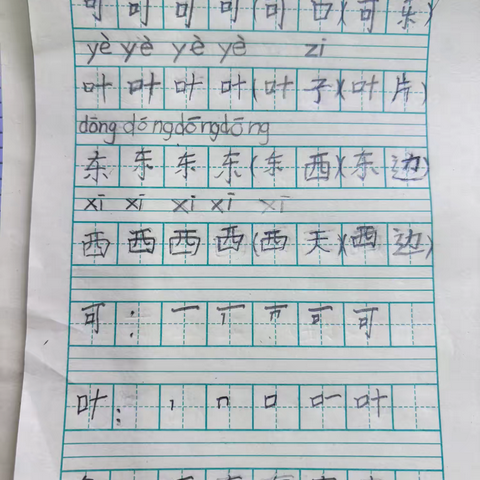 可 可 可 可 (可 口)(可 乐)
yè yè yè yè zi
叶 叶 叶 叶 (叶 子)(叶 片)
dōng dōng dōng dōng
东 东 东 东 (东 西)(东 边)
xī xī xī xī xī
西 西 西 西 (西 天)(西 边)
可 : 一 丆 可
叶 : 丨 口 叶